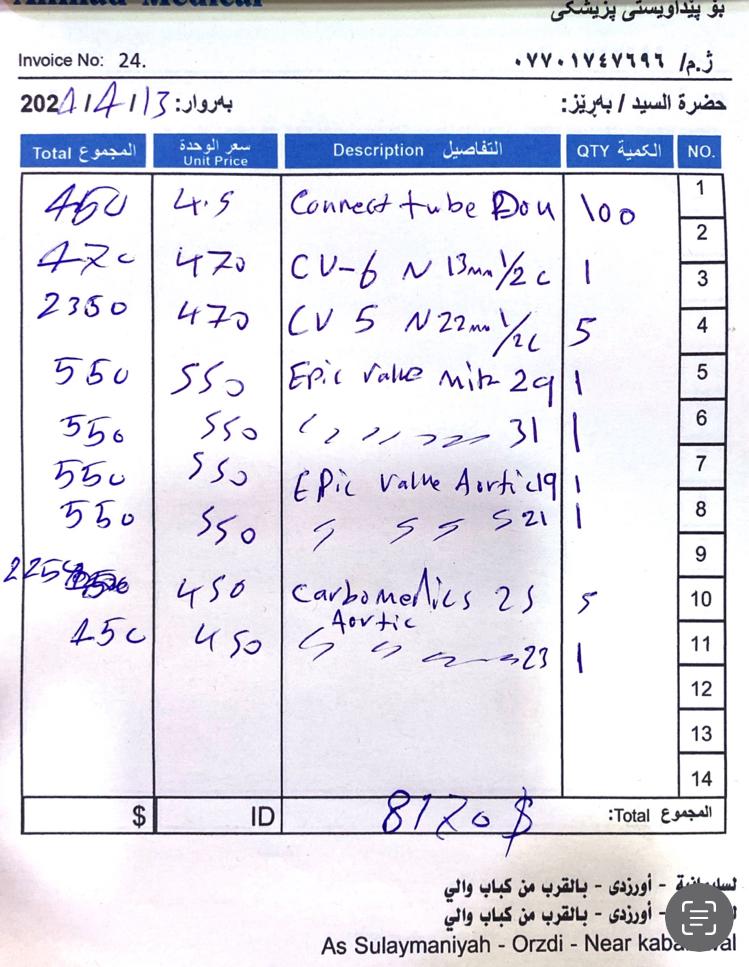 Ahmad Medical
بۆ پێداویستی پزیشکی
Invoice No: 24.
ژ.م/ ٠٧٧٠١٧٤٧٦٩٦
بەروار: 2024/4/13
حضرة السيد / بەڕێز:
المجموع Total سعر الوحدة Unit Price التفاصيل Description الكمية QTY NO.
450 4.5 Connect tube Dou 100 1
2
470 470 CV-6 N 13mm 1/2 c 1 3
2350 470 CV 5 N 22mm 1/2c 5 4
550 550 Epic valve mitr 29 1 5
550 550 〃 〃 〃 31 1 6
7
550 550 EPic valve Aortic 19 1
550 550 〃 〃 〃 〃 21 1 8
9
2250 450 Carbomedics 25 5 10
Aortic
450 450 〃 〃 〃 23 1 11
12
13
14
$ ID 8170 $ المجموع Total:
لسليمانية - أورزدى - بالقرب من كباب والي
أورزدى - بالقرب من كباب والي
As Sulaymaniyah - Orzdi - Near kaba